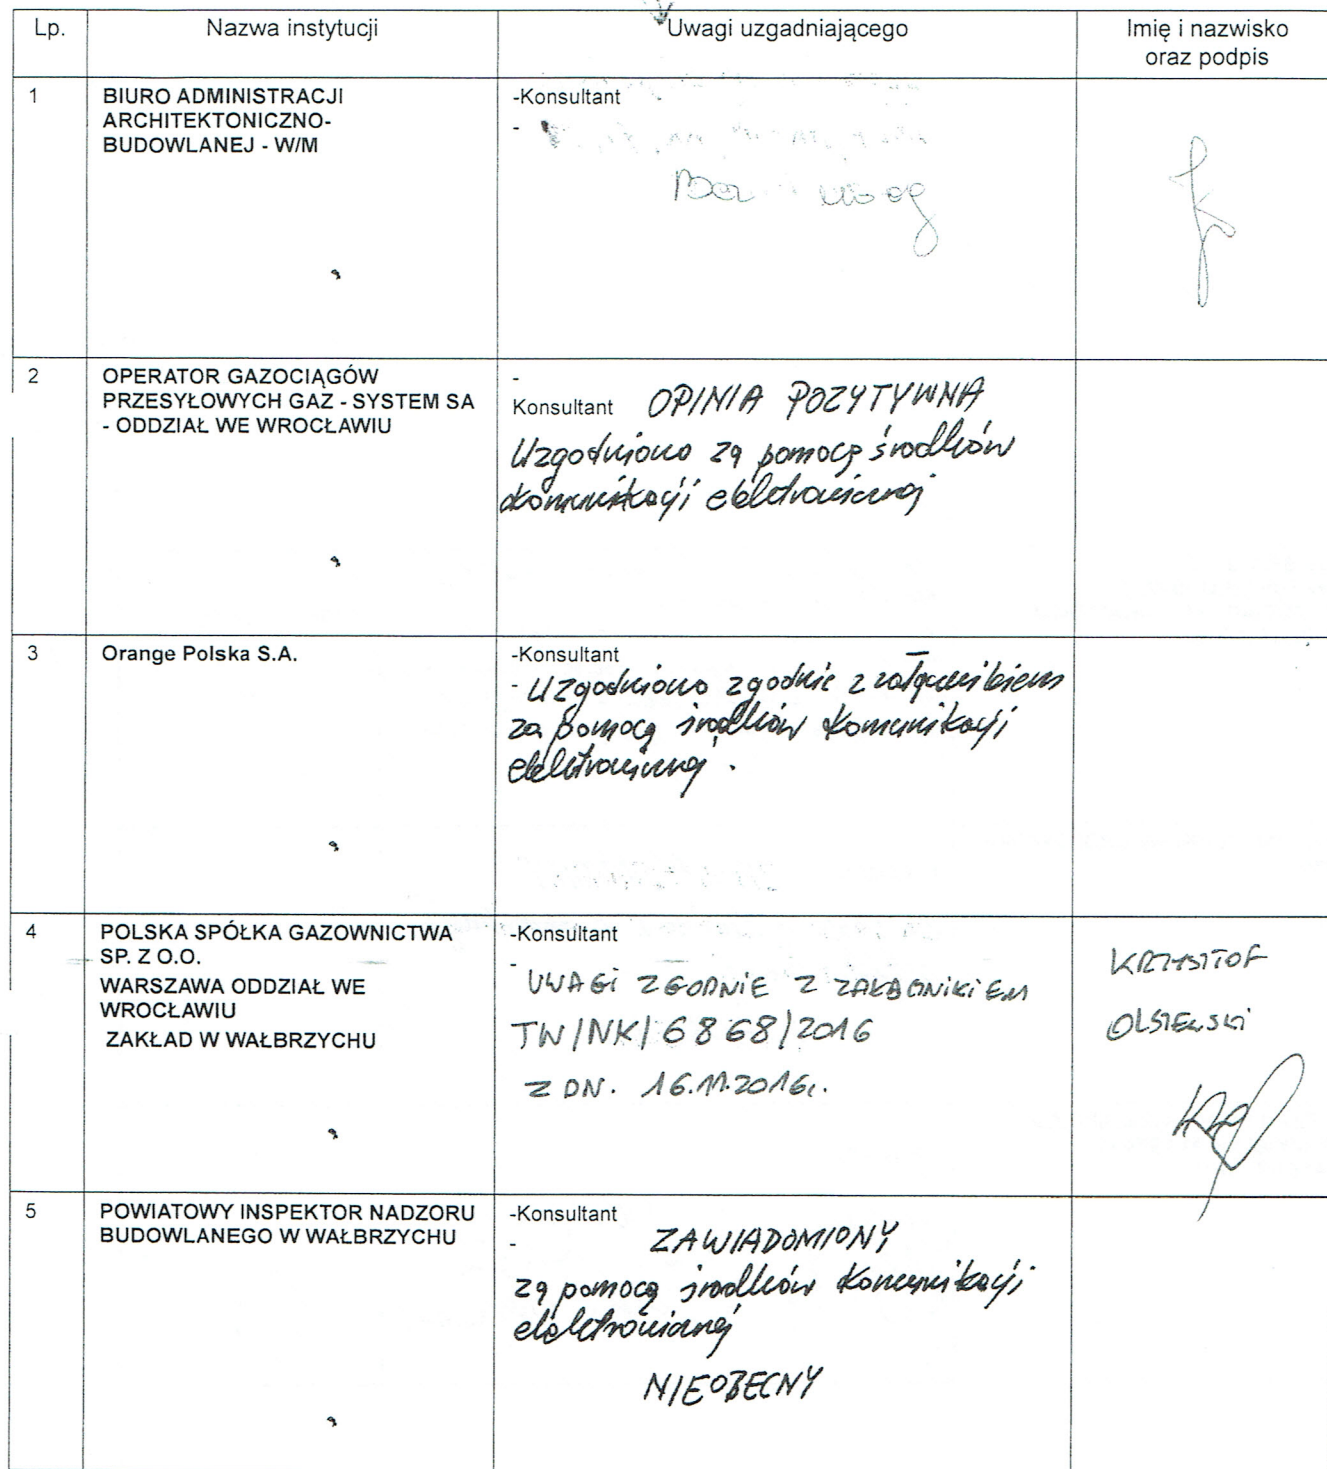 Lp.
Nazwa instytucji
Uwagi uzgadniającego
Imię i nazwisko
oraz podpis
1
BIURO ADMINISTRACJI
ARCHITEKTONICZNO-
BUDOWLANEJ - W/M
-Konsultant
-
Bez uwag
2
OPERATOR GAZOCIĄGÓW
PRZESYŁOWYCH GAZ - SYSTEM SA
- ODDZIAŁ WE WROCŁAWIU
-
Konsultant OPINIA POZYTYWNA
Uzgodniono za pomocą środków
komunikacji elektronicznej
3
Orange Polska S.A.
-Konsultant
- Uzgodniono zgodnie z załącznikiem
za pomocą środków komunikacji
elektronicznej.
4
POLSKA SPÓŁKA GAZOWNICTWA
SP. Z O.O.
WARSZAWA ODDZIAŁ WE
WROCŁAWIU
ZAKŁAD W WAŁBRZYCHU
-Konsultant
-
UWAGI ZGODNIE Z ZAŁĄCZNIKIEM
TW/NK/6868/2016
Z DN. 16.11.2016r.
KRZYSZTOF
OLSZEWSKI
5
POWIATOWY INSPEKTOR NADZORU
BUDOWLANEGO W WAŁBRZYCHU
-Konsultant
-
ZAWIADOMIONY
za pomocą środków komunikacji
elektronicznej
NIEOBECNY